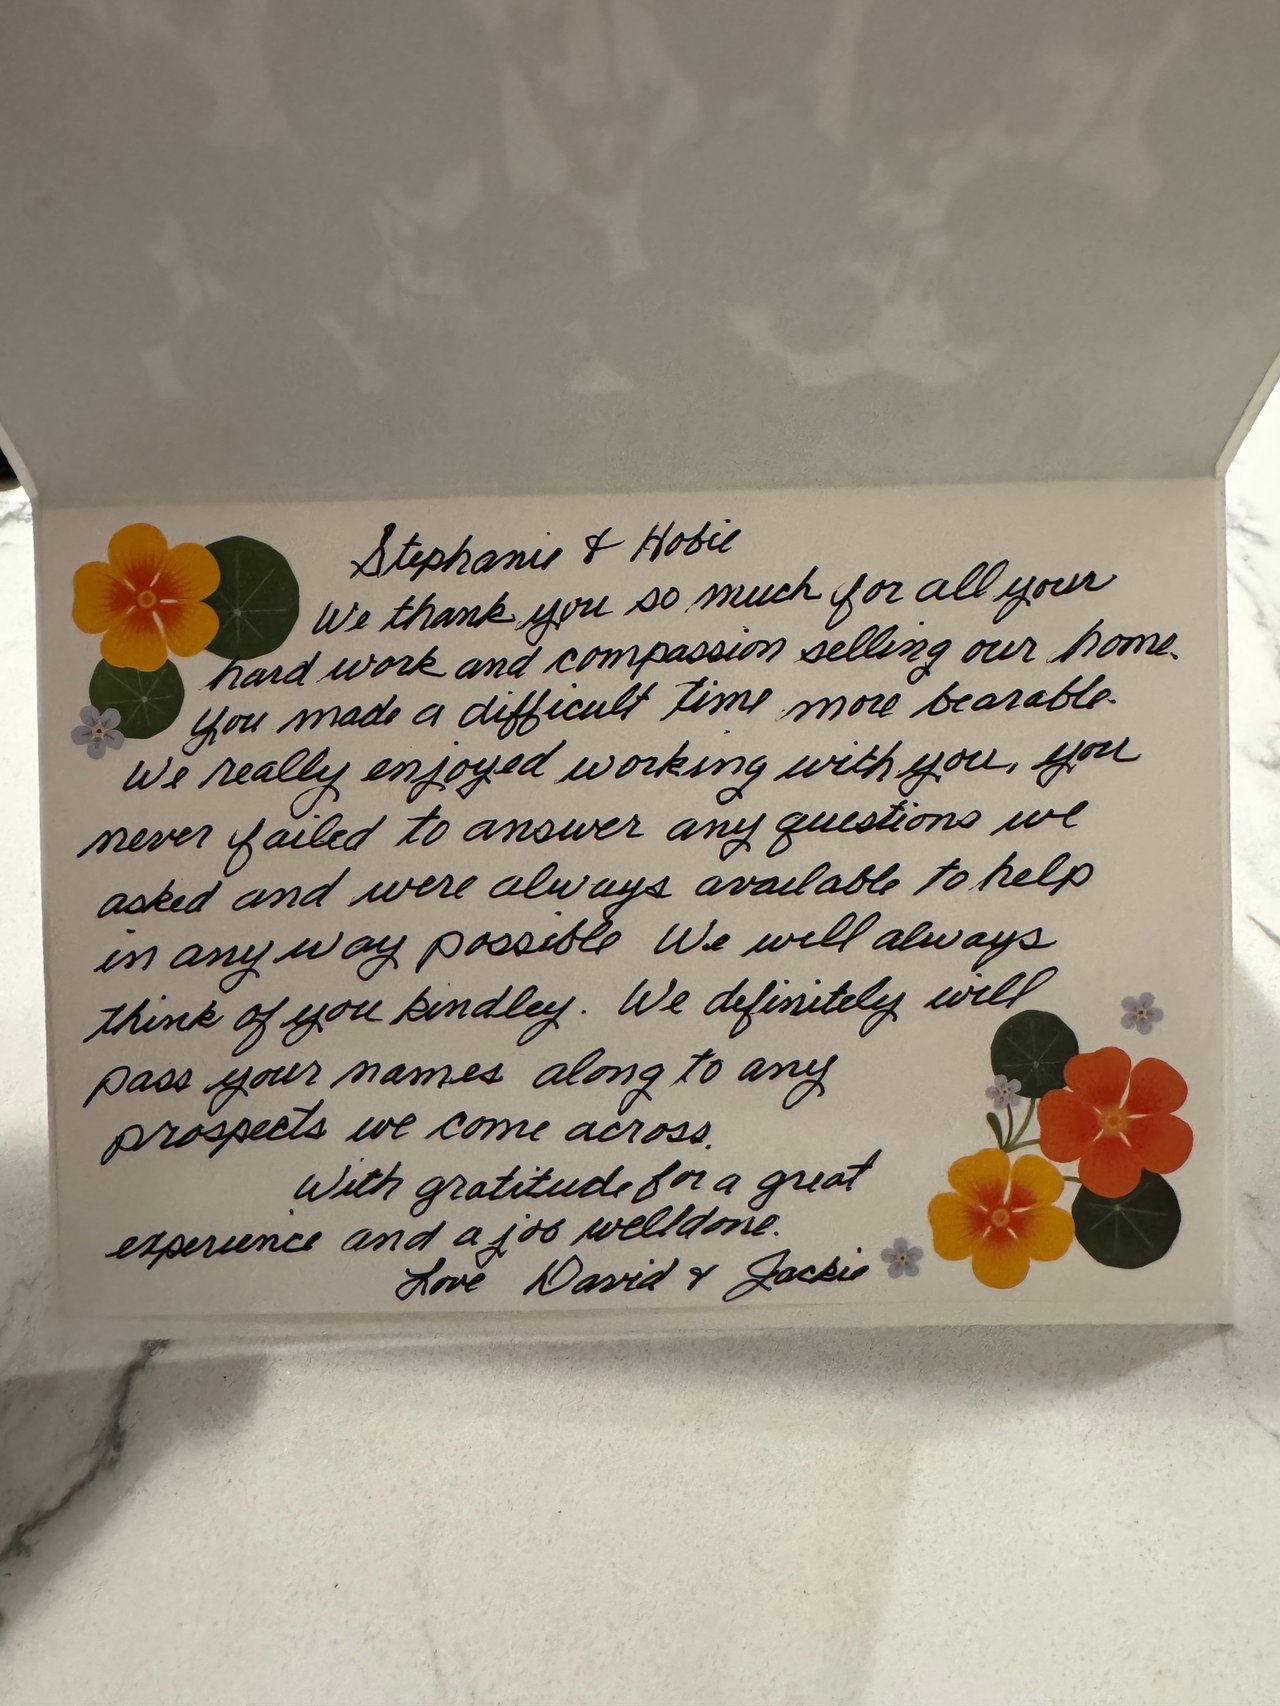 Stephanie & Hobie
We thank you so much for all your
hard work and compassion selling our home.
You made a difficult time more bearable.
We really enjoyed working with you, you
never failed to answer any questions we
asked and were always available to help
in any way possible We will always
think of you kindley. We definitely will
pass your names along to any
prospects we come across.
With gratitude for a great
experience and a job well done.
Love David & Jackie